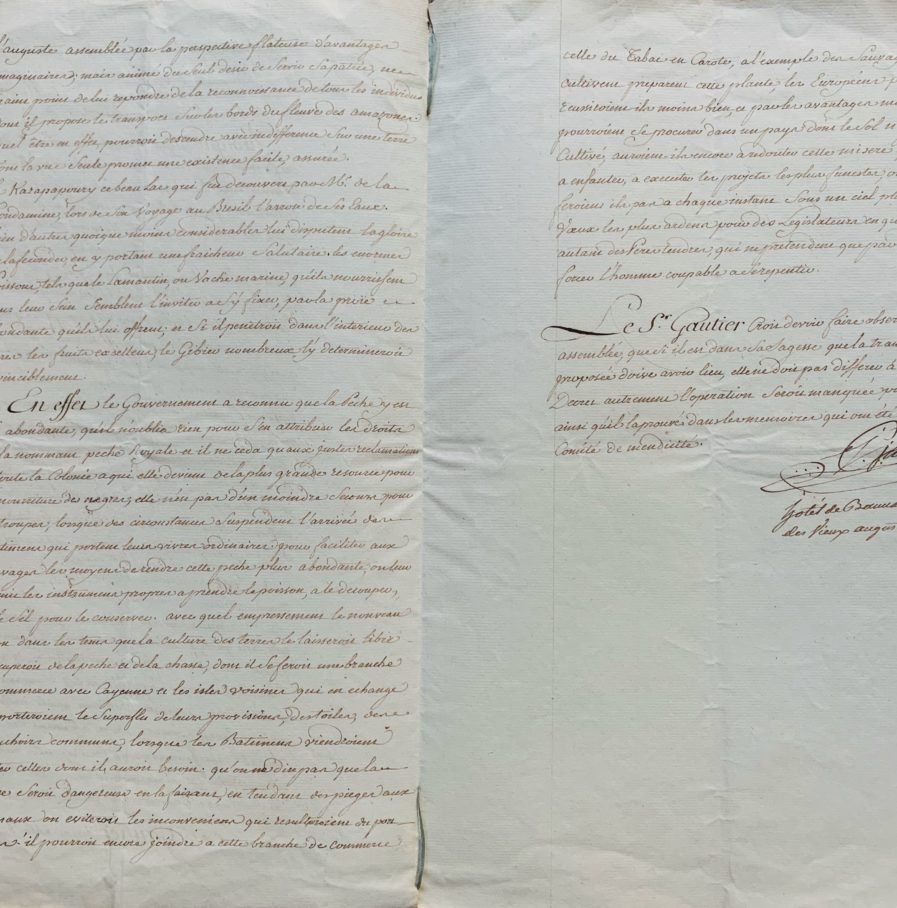 l'auguste assemblée par la perspective flateuse d'avantages
maginaires; mais animé du seul desir de servir sa patrie, ne
raint point de lui repondre de la reconnoissance de tous les individus
dont il propose le transport sur les bords du fleuve des amazones
quel être en effet pourroit descendre avec indifference sur une terre
dont la vue seule promet une existence facile, assurée.
Karapapoury ce beau lac qui fut decouvert par Mr. de la
Condamine, lors de son voyage au Bresil l'arrose de ses eaux.
ien d'autres quoique moins considerables lui disputent la gloire
e la feconder, en y portant une fraicheur salutaire. les enormes
oissons, tels que le lamantin, ou Vache marine, qu'ils nourrissent
ans leur sein semblent l'inviter a s'y fixer, par la proie
ondante qu'ils lui offrent; et si il penetroit dans l'interieur des
les fruits excellens, le Gibier nombreux l'y determineroit
vinciblement.
En effet le Gouvernement a reconnu que la Pêche y est
i abondante, qu'il n'oublia rien pour s'en attribuer les droits
la nommant pêche Royale et il ne ceda qu'aux justes reclamations
toute la Colonie a qui elle devient de la plus grande resource pour
nourriture des negres; elle n'est pas d'un moindre secours pour
troupes, lorsque des circonstances suspendent l'arrivée des
timens qui portent leurs vivres ordinaires; pour faciliter aux
uvages les moyens de rendre cette pêche plus abondante, on leur
les instrumens propres a prendre le poisson, a le decouper,
le sel pour le conserver. avec quel empressement le nouveau
on dans les tems que la culture des terres le laisseroit libre
cuperoit de la peche et de la chasse, dont il se feroit une branche
commerce avec Cayenne et les isles voisines qui en echange
porteroient le superflu de leurs provisions, des toiles, des
uchoirs communs, lorsque les Batimens viendroient
celles dont il auroit besoin. qu'on ne dise pas que la
e seroit dangereuse en la faisant, en tendant des pieges aux
maux on eviteroit les inconveniens qui resulteroient du port
il pourroit encore joindre a cette branche de commerce
celle du Tabac en Carote, a l'exemple des Sauva
cultivent preparent cette plante, les Européens
reussiroient ils moins bien, et par les avantages
pourroient se procurer dans un pays dont le sol n
cultivé, auroient ils encore a redouter cette misere
a enfanter, a executer les projets les plus funestes
feroient ils pas a chaque instant sous un ciel pl
vœux les plus ardens pour des Legislateurs en qu
autant des Peres tendres, qui ne pretendent que par
forcer l'homme coupable a se repentir.
Le Sr. Gautier Croit devoir faire obser
assemblée, que s'il est dans sa sagesse que la tra
proposée doive avoir lieu, elle ne doit pas differer à
Decret autrement l'operation seroit manquée
ainsi qu'il l'a prouvé dans les memoires qui ont été
Comité de mendicité.
hotel de
des Vieux augus